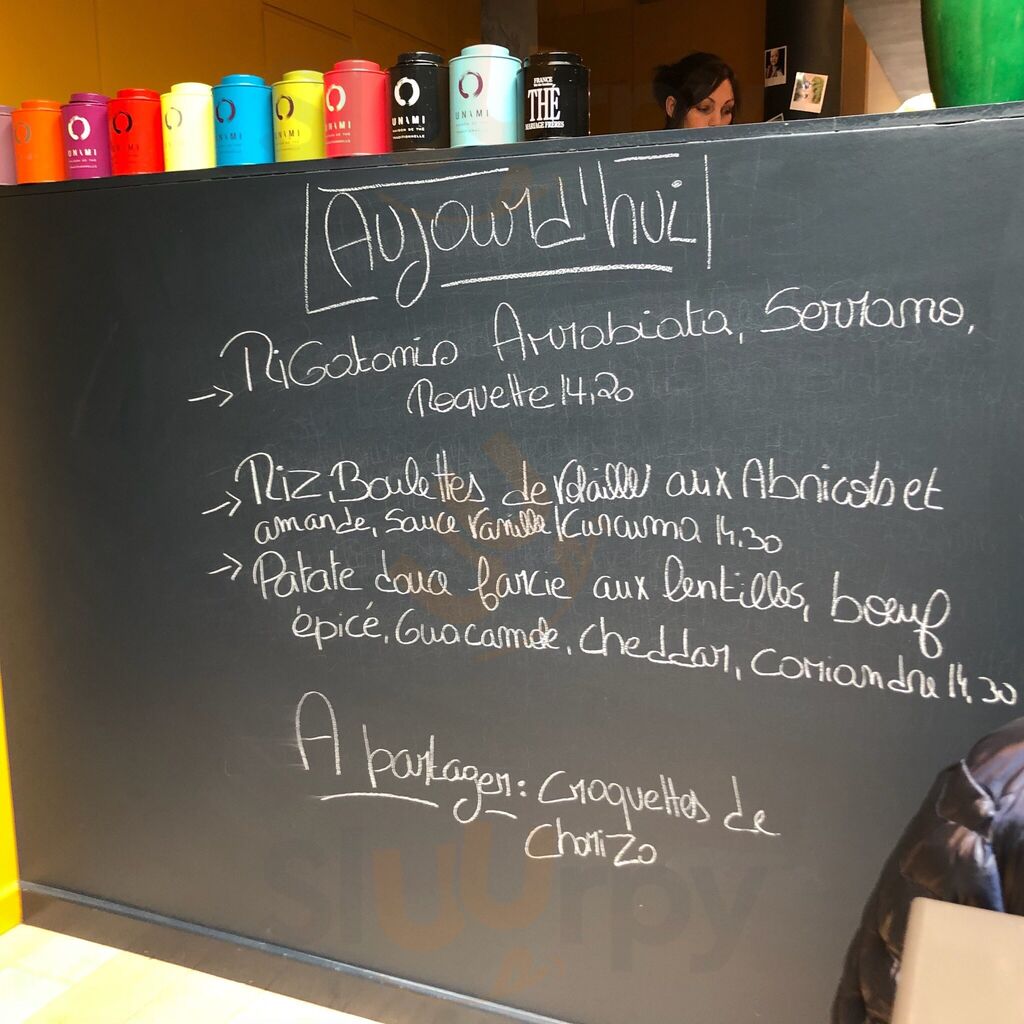 UNAMI
MAISON DE THÉ
TRADITIONNELLE
UNAMI
UNAMI
UNAMI
UNAMI
UNAMI
FRANCE
THÉ
MARIAGE FRÈRES
Aujourd'hui
→ Rigatonis Arrabiata, Serrano,
Roquette 14,20
→ Riz, Boulettes de volaille aux Abricots et
amande, sauce vanille/Curcuma 14.30
→ Patate douce farcie aux lentilles, bœuf
épicé, Guacamole, cheddar, coriandre 14,30
A partager : Croquettes de
Chorizo
sluurpy